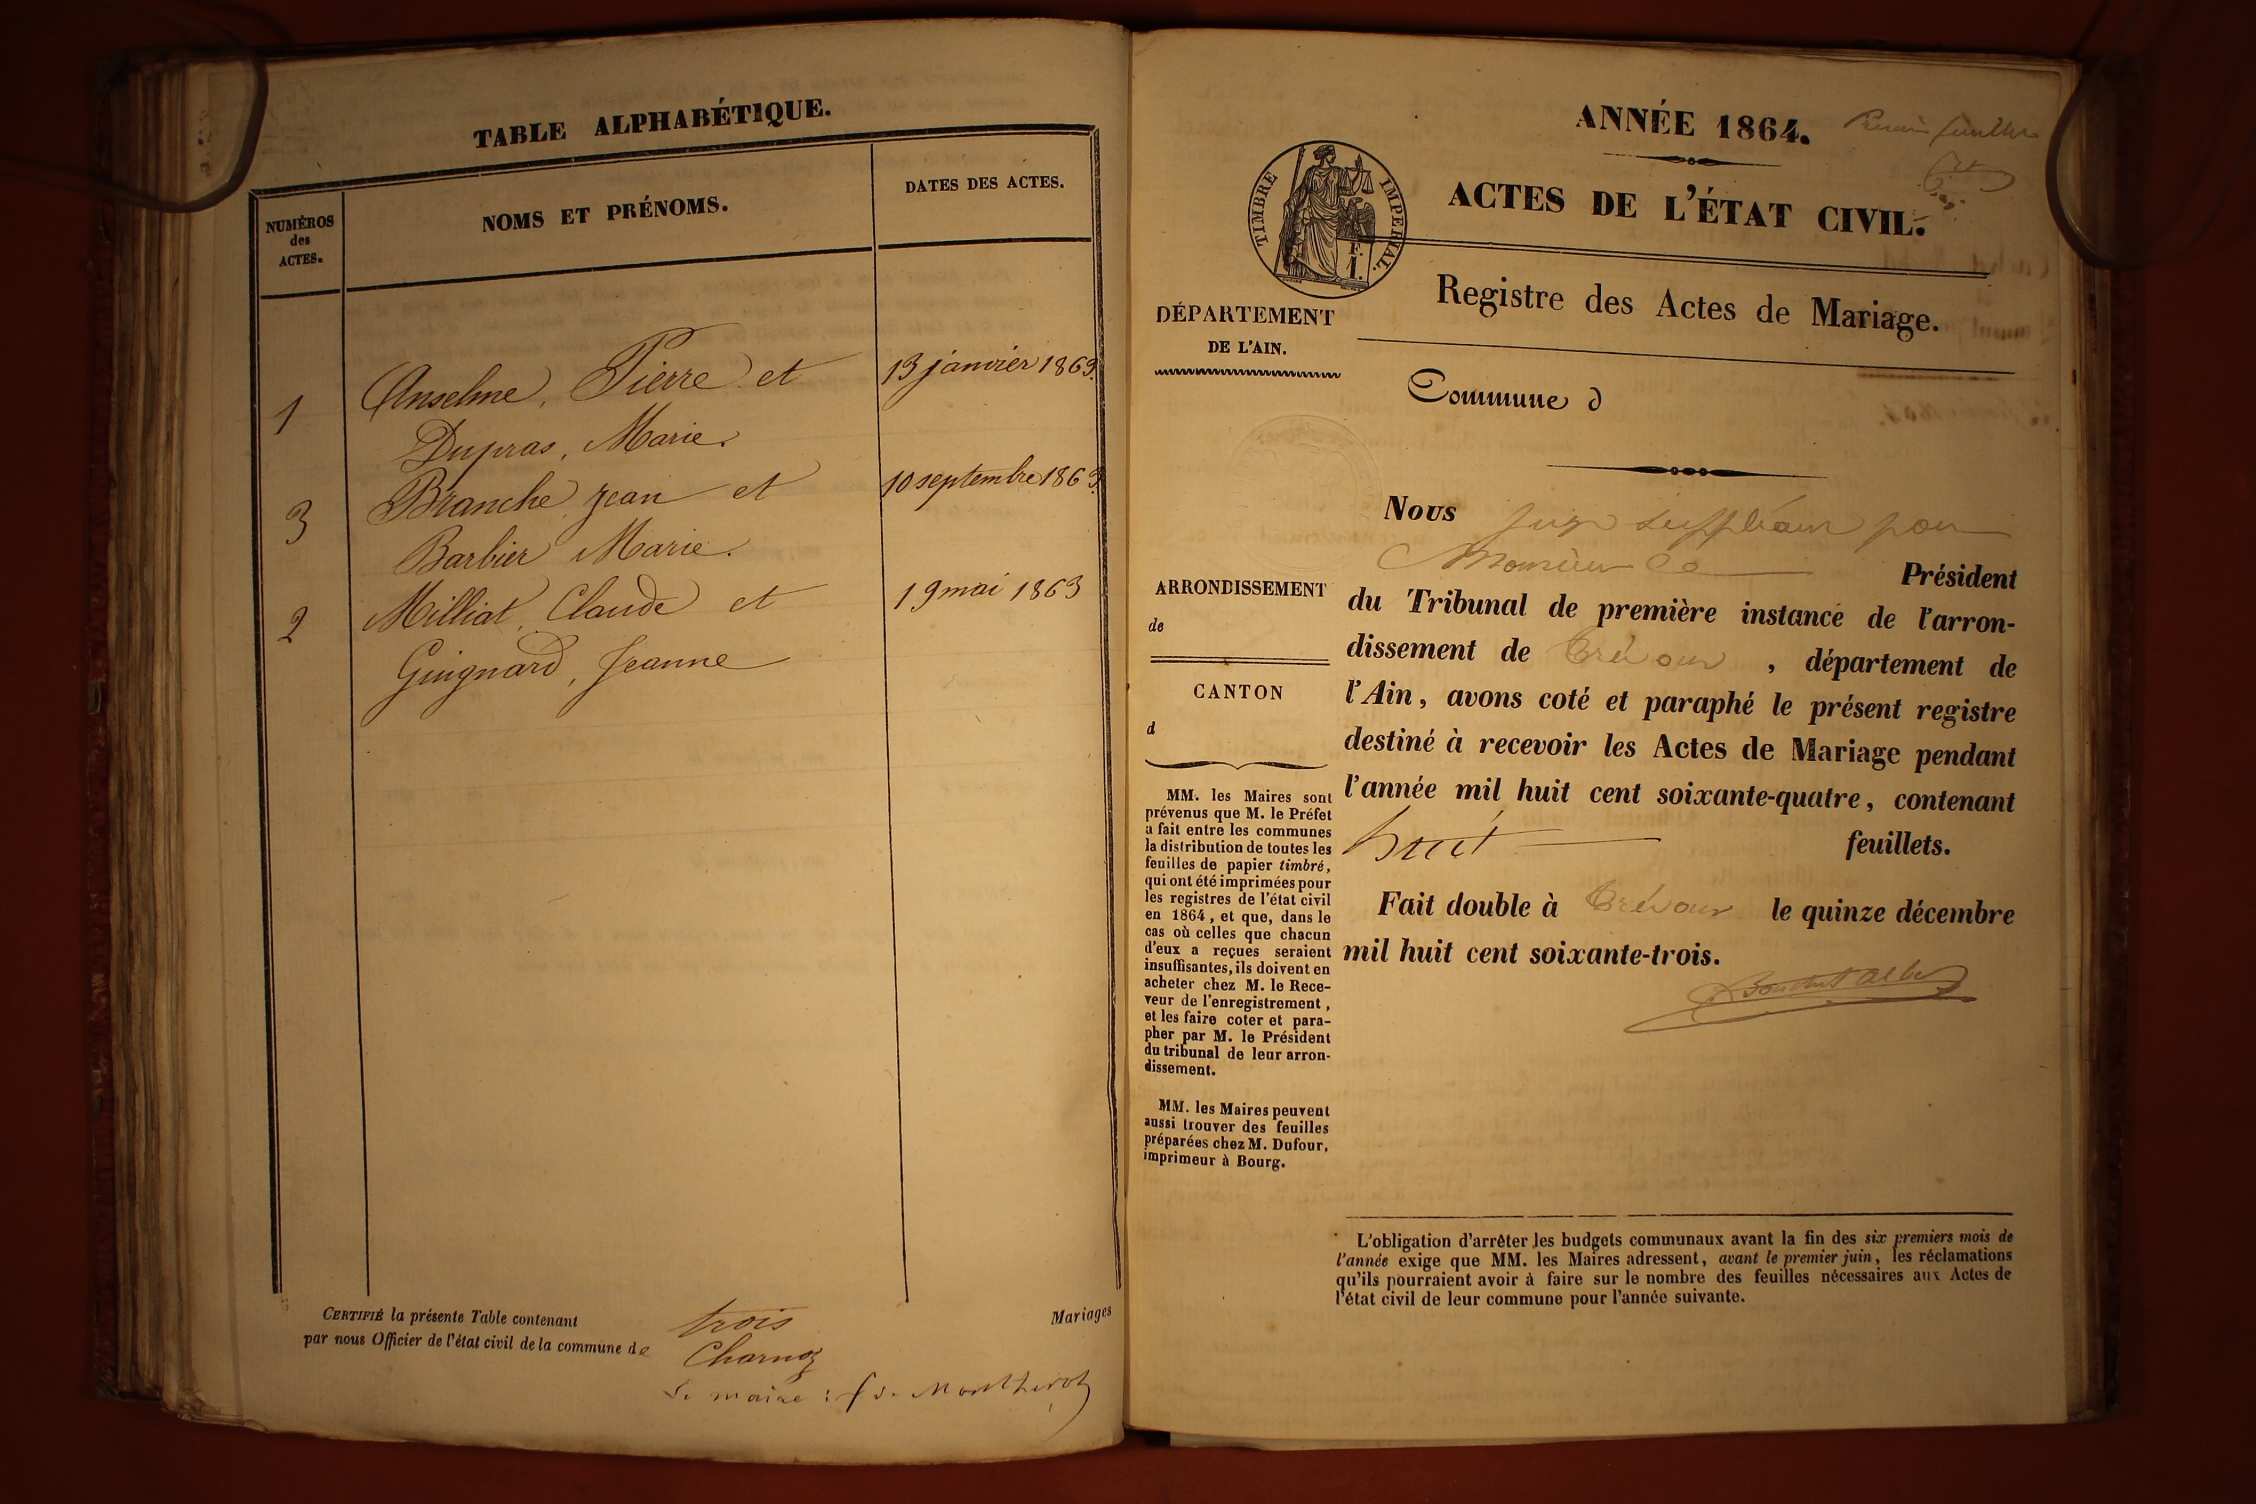 TABLE ALPHABÉTIQUE.
NUMÉROS
des
ACTES.
NOMS ET PRÉNOMS.
DATES DES ACTES.
1
Anselme, Pierre et
13 janvier 1863.
Dupras, Marie.
3
Branche Jean et
10 septembre 1863.
Barbier Marie.
2
Milliat, Claude et
19 mai 1863
Guignard, Jeanne
CERTIFIÉ la présente Table contenant trois Mariages
par nous Officier de l'état civil de la commune de Charnoz
Le maire : f d. Montherot
ANNÉE 1864.
ACTES DE L'ÉTAT CIVIL.
TIMBRE IMPERIAL.
F.
1.
Registre des Actes de Mariage.
DÉPARTEMENT
DE L'AIN.
Commune d
ARRONDISSEMENT
de
CANTON
d
MM. les Maires sont
prévenus que M. le Préfet
a fait entre les communes
la distribution de toutes les
feuilles de papier timbré,
qui ont été imprimées pour
les registres de l'état civil
en 1864, et que, dans le
cas où celles que chacun
d'eux a reçues seraient
insuffisantes, ils doivent en
acheter chez M. le Rece-
veur de l'enregistrement,
et les faire coter et para-
pher par M. le Président
du tribunal de leur arron-
dissement.
MM. les Maires peuvent
aussi trouver des feuilles
préparées chez M. Dufour,
imprimeur à Bourg.
Nous Juge suppléant pour
Monsieur le Président
du Tribunal de première instance de l'arron-
dissement de Trévoux, département de
l'Ain, avons coté et paraphé le présent registre
destiné à recevoir les Actes de Mariage pendant
l'année mil huit cent soixante-quatre, contenant
huit feuillets.
Fait double à Trévoux le quinze décembre
mil huit cent soixante-trois.
L'obligation d'arrêter les budgets communaux avant la fin des six premiers mois de
l'année exige que MM. les Maires adressent, avant le premier juin, les réclamations
qu'ils pourraient avoir à faire sur le nombre des feuilles nécessaires aux Actes de
l'état civil de leur commune pour l'année suivante.